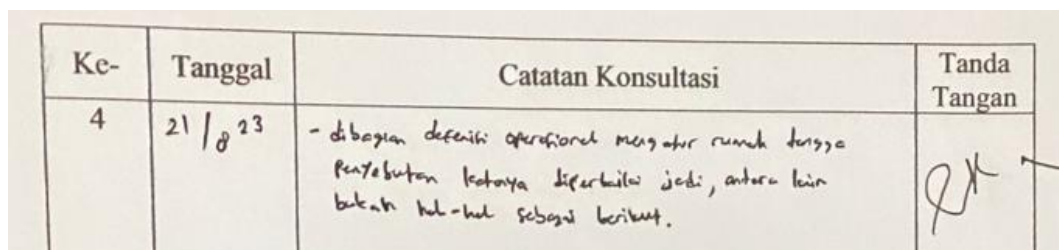 Ke-
Tanggal
Catatan Konsultasi
Tanda
Tangan
4
21/8 23
- dibagian defenisi operasional mengatur rumah tangga
Penyebutan katanya diperbaiki jadi, antara lain
bukan hal-hal sebagai berikut.